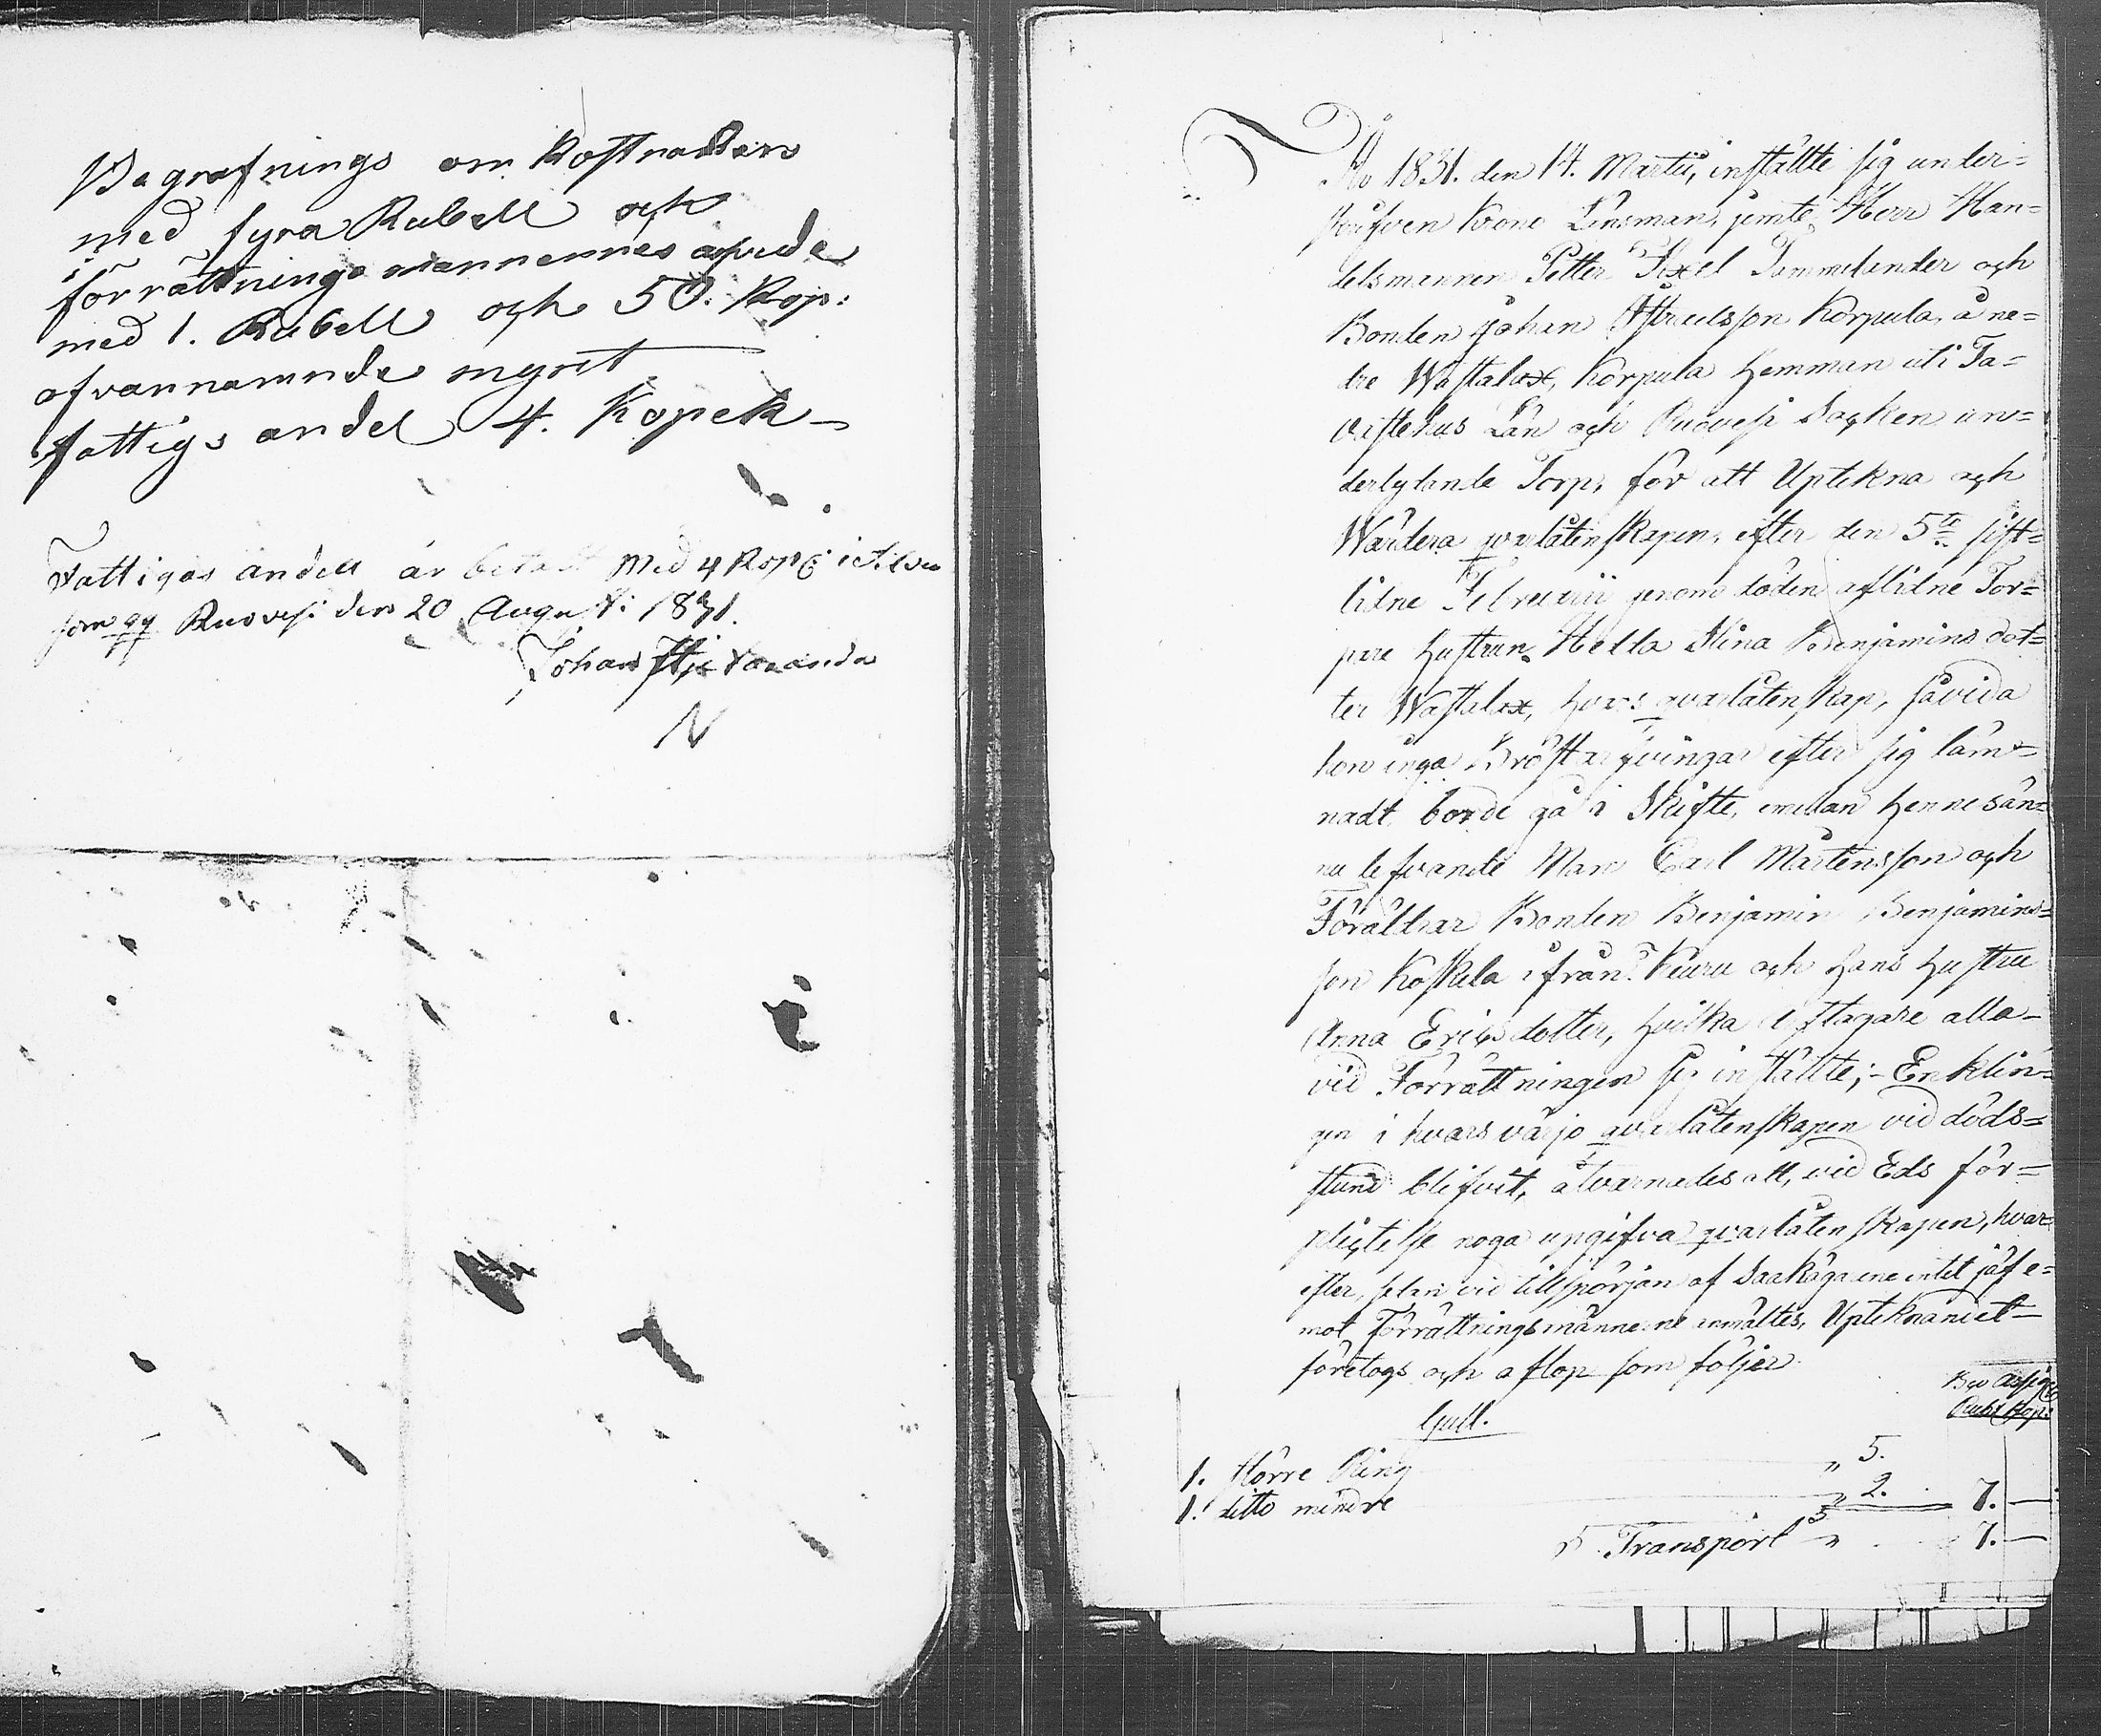 Begrafnings om Kostnaden
med fyra Rubell och
förrättnings mannernes arfvude
med 1. Rubell och 50. Kop:
ofvannamnde mynt
fattigs andel 4. Kopek
Fattigas andell är betalt Med 4 Kop: Silver
som qv Ruovesi den 20 Augusti 1831.
Johan
N
År 1831. den 14. Martii, instälte sig under-
skrifven Krono Länsman, jemte Herr Han-
delsmannen Petter Axel Tammelander och
Bonden Johan Israelsson Korpula, å ne-
dre Wästalax, Korpula Hemman uti Ta-
vastehus Län och Ruovesi Socken un-
derlydande Torp, för att Uptekna och
Wärdera qvarlåtenskapen, efter den 5te sist-
lidne Februarii genom döden aflidne Tor-
pare hustrun Hella Stina Benjamins dot-
ter Wästalax, hvars qvarlåtenskap, såvida
hon inga Bröstarfvingar efter sig läm-
nadt, borde gå i Skifte, emellan hennes än-
nu lefvande Man Carl Mårtensson och
Föräldrar Bonden Benjamin Benjamins-
son Koskela ifrån Keuru och hans hustru
Anna Ericsdotter, hvilka Arftagare alla
vid Förrättningen sig instälte; Enklin-
gen i hvars värjo qvarlåtenskapen vid döds-
stund blifvit, åtvarnades att, vid Eds för-
pligtelse noga upgifva qvarlåtenskapen, hvar-
efter, sedan vid tillspörjan af Sakägarene intet jäf e-
mot Förrättningsmännerne anmältes, Upteknandet
företogs och aflop som följer
Bco Assign
Rub: Kop:
Gull.
1. större Ring " 5.
1. ditto mindre " 2. 7. —
Transport " 7. —